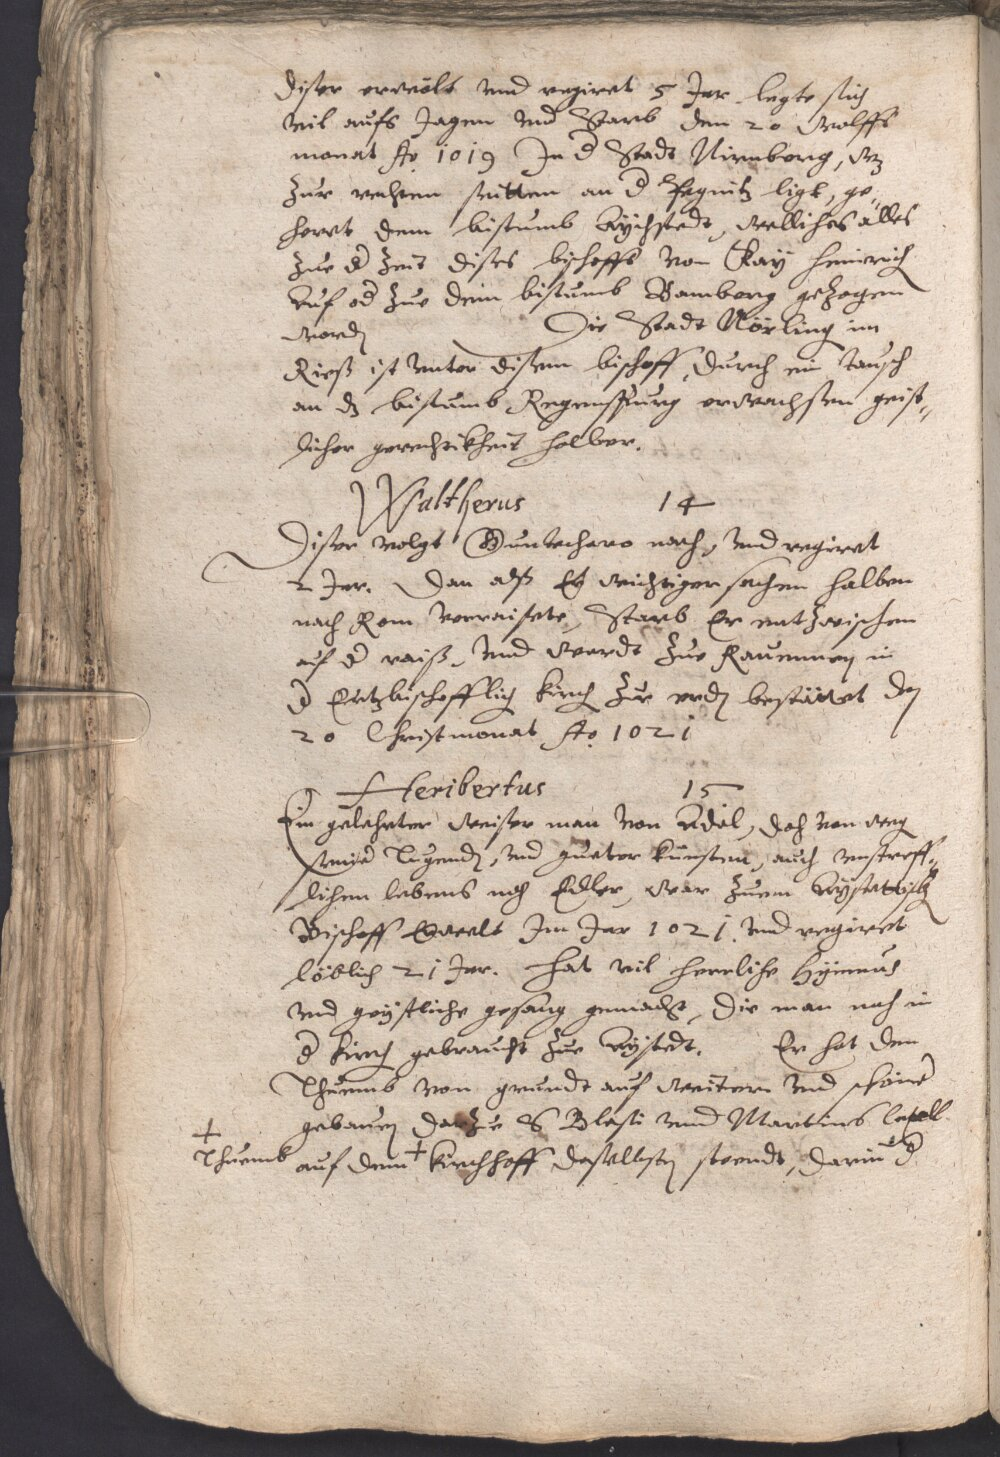 diser erwölt vnd regiret 5 Jar legte sich
vil aufs Jagen vnd Starb den 20 Wolffs
monat Ao 1019 In d Stadt Nirmberg, wz
zur rechten seitten an d Pegnitz ligt, ge„
hoert dem bistumb Aychstedt, welliches alles
zue d Zeit dises bischoffs von Kay Heinrich
auf od zue dem bistumb Bamberg gezogen
word
Die Stadt Nörling im
Riess ist vnter disem bischoff, durch ein tausch
an dz bistumb Regenspurg erwachssen geist„
licher gerechtikheit halber.
Waltherus 14
Diser volgt Guntecharo nach, vnd regiret
2 Jar. Dan alß Er wichtiger sachen halben
nach Rom verraisete, starb Er entzwischen
auf d raiß, vnd wardt zue Rauenney in
d Ertzbischofflich kirch zue erd bestättet den
20 Christmonat Ao 1021
Heribertus 15
Ein gelehrter weiser man von Adel, doch von weg
seind Tugend, vnd gueter künsten, auch vnstreff„
lichen lebens noch Edler, war zuem Aystettisch
Bischoff Erwelt Im Jar 1021. vnd regiret
löblich 21 Jar. Hat vil herrliche Hymnus
vnd geystliche gesang gemacht, die man noch in
d kirch gebraucht zue Aystedt. Er hat den
Thuemb von grundt auf weitern vnd schöner
gebauen darzue S Blasi vnd Martins Capell
+
Thuemb auf dem + kirchhoff daselbsten steendt, darin d